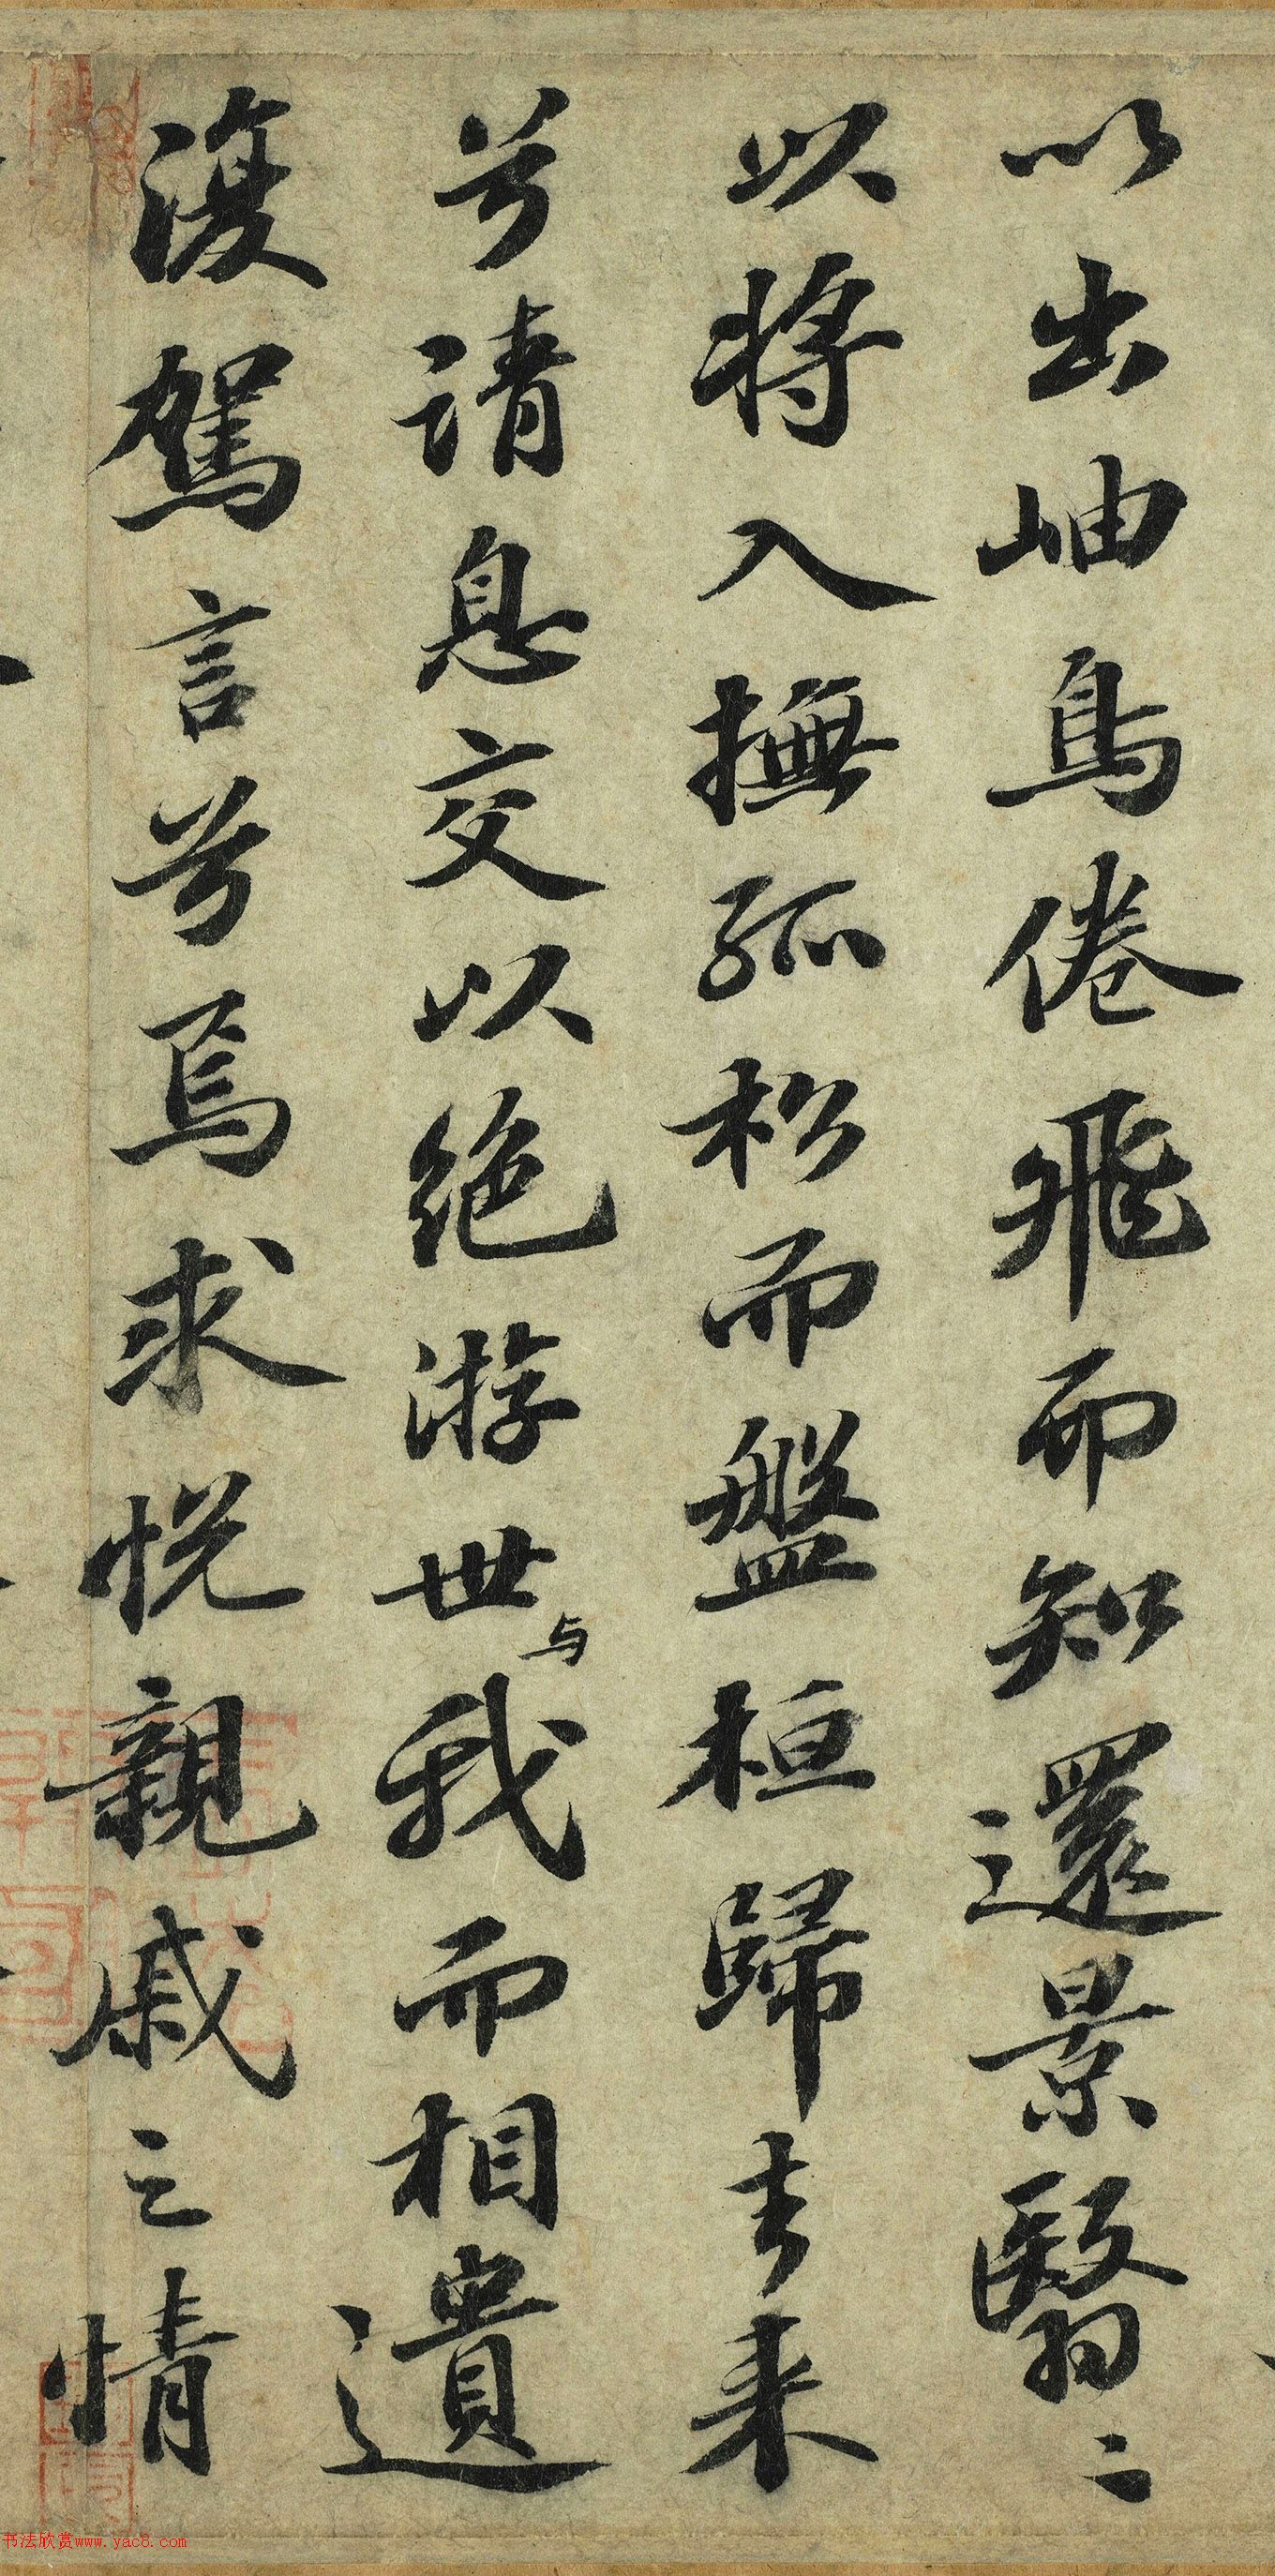 以出岫鳥倦飛而知還景翳〻
以將入撫孤松而盤桓歸去来
兮請息交以絕游世与我而相遺
復駕言兮焉求悅親戚之情
书法欣赏www.yac8.com